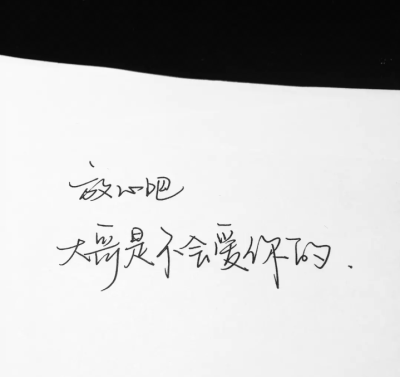 放心吧
大哥是不会爱你的.